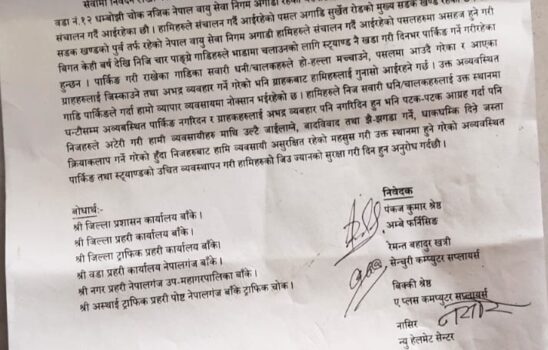 सेवामा निवेदन
वडा नं.१२ धम्बोझी चोक नजिक नेपाल वायु सेवा निगम अगाडी
संचालन गर्दै आईरहेका छौ । हामिहरुले संचालन गर्दै आईरहेको पसल अगाडि सुर्खेत रोडको मुख्य सडक खण्ड
सडक खण्डको पुर्व तर्फ रहेको नेपाल वायु सेवा निगम अगाडी हामिहरुले संचालन गर्दै आईरहेको पसलहरुमा असहज हुने गरी
बिगत केही बर्ष देखि निजि चार पाङ्ग्रे गाडिहरुले भाडामा चलाउनको लागि स्ट्याण्ड नै खडा गरी दिनभर पार्किङ गर्ने गरीरहेका
हुन्छन । पार्किङ गरी राखेका गाडिका सवारी धनी/चालकहरुले हो-हल्ला मच्चाउने, पसलमा आउदै गरेका र आएका
ग्राहहरुलाई जिस्काउने तथा अभद्र ब्यवहार गर्ने गरेको भनि ग्राहकबाट हामिहरुलाई गुनासो आईरहने गर्छ । उक्त अव्यवस्थित
गाडि पार्किङले गर्दा हामो व्यापार व्यवसायमा नोक्सान भईरहेको छ । हामिहरुले निज सवारी धनि/चालकहरुलाई उक्त स्थानमा
घन्टौसम्म अव्यबस्थित पार्किङ नगरिदिन र ग्राहकहरुलाई अभद्र व्यवहार पनि नगरीदिन हुन भनि पटक-पटक आग्रह गर्दा पनि
निजहरुले अटेरी गरी हामी व्यवसायीहरु माथि उल्टै जाईलाग्ने, बादविवाद तथा झै-झगडा गर्ने, धाकधम्कि दिने जस्ता
क्रियाकलाप गर्ने गरेको हुँदा निजहरुबाट हामि व्यवसायी असुरक्षित रहेको महसुस गरी उक्त स्थानमा हुने गरेको अव्यवस्थित
पार्किङ तथा स्ट्याण्डको उचित व्यवस्थापन गरी हामिहरुको जिउ ज्यानको सुरक्षा गरी दिन हुन अनुरोध गर्दछौ ।
बोधार्थः-
श्री जिल्ला प्रशासन कार्यालय बाँके ।
श्री जिल्ला प्रहरी कार्यालय बाँके ।
श्री जिल्ला ट्राफिक प्रहरी कार्यालय बाँके ।
श्री वडा प्रहरी कार्यालय नेपालगंज बाँके ।
श्री नगर प्रहरी नेपालगंज उप-महागरपालिका बाँके ।
श्री अस्थाई ट्राफिक प्रहरी पोष्ट नेपालगंज बाँके ट्राफिक चोक ।
निवेदक
पंकज कुमार श्रेष्ठ
अम्बे फर्निसिङ
रेमन्त बहादुर खत्री
सेन्चुरी कम्प्युटर सप्लायर्स
बिक्की श्रेष्ठ
ए प्लस कमप्युटर सप्लायर्स
नासिर
न्यु हेलमेट सेन्टर